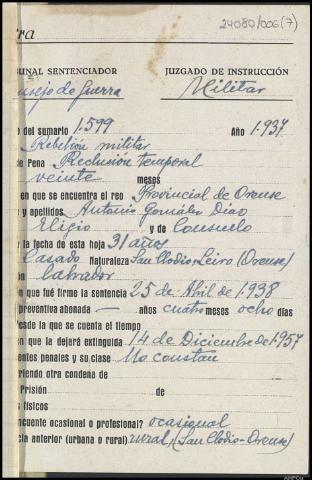 24080/006(7)
ra
UNAL SENTENCIADOR JUZGADO DE INSTRUCCIÓN
nsejo de Guerra Militar
o del sumario 1.599 Año 1.937
Rebelión militar
de Pena Reclusión temporal
veinte meses
en que se encuentra el reo Provincial de Orense
e y apellidos Antonio González Diao
Eligio y de Consuelo
la fecha de esta hoja 31 años
Casado Naturaleza San Clodio-Leiro (Orense)
ón labrador
en que fué firme la sentencia 25 de Abril de 1938
preventiva abonada — años cuatro meses ocho días
desde la que se cuenta el tiempo
en que la dejará extinguida 14 de Diciembre de 1957
entes penales y su clase No constan
riendo otra condena de
Prisión de
s físicos
ncuente ocasional o profesional? ocasional
cia anterior (urbana o rural) rural, (San Clodio-Orense)